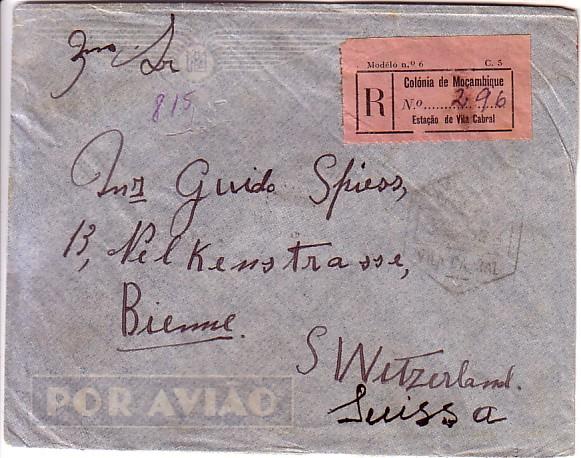 Exmo Sr
815
Modélo n.º 6 C. 5
Colónia de Moçambique
R N.o 296
Estação de Vila Cabral
Guido Spiess,
13, Nelkenstrasse,
Bienne.
SWitzerland.
Suissa
VILA CABRAL
POR AVIÃO